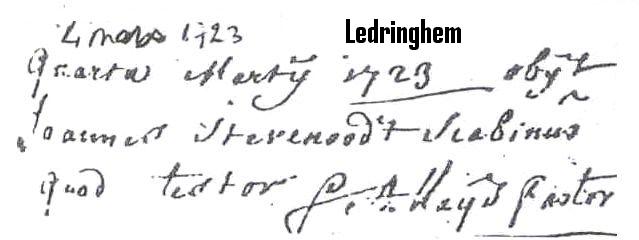 4 mars 1723 Ledringhem
Quarta Martÿ 1723 obÿt
Joannes Stevenoodt Scabinus
quod testor Pastor